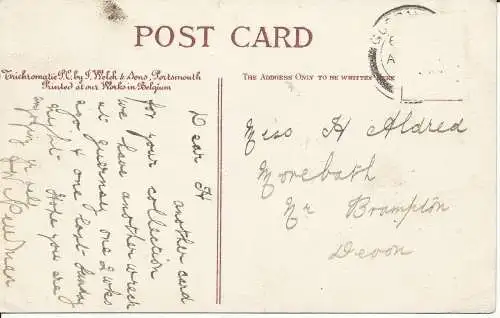 POST CARD
Trichromatic P.C. by J. Welch & Sons, Portsmouth
Printed at our Works in Belgium
THE ADDRESS ONLY TO BE WRITTEN HERE
Dear H
another card
for your collection
we have another wreck
at Guernsey one 2 wks
ago & one last Sunday
night Hope you are
enjoying
well
Newman
Miss H Aldred
Morebath
Nr Brampton
Devon